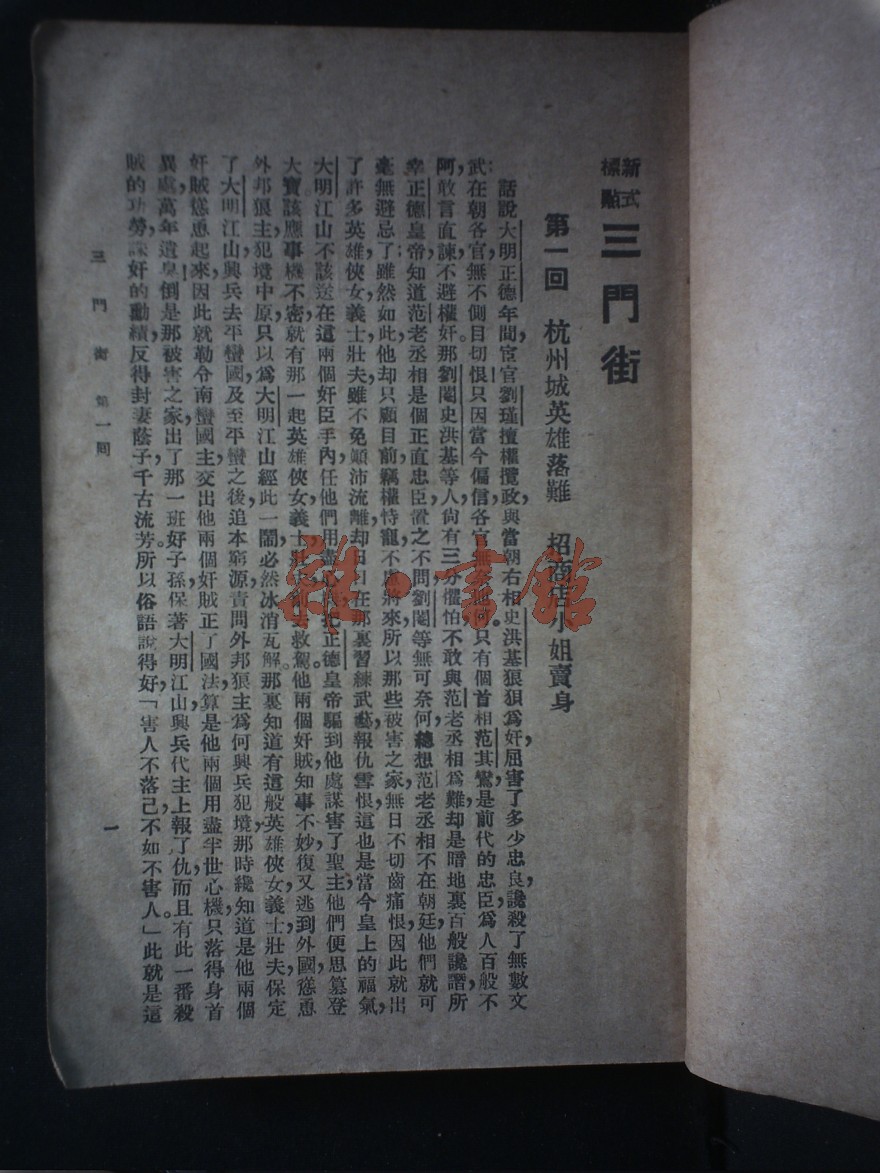 新式標點 三門街
第一回 杭州城英雄落難 招商店小姐賣身
話說大明正德年間宦官劉瑾擅權攬政與當朝右相史洪基狼狽爲奸屈害了多少忠良讒殺了無數文
武在朝各官無不側目切恨只因當今偏信各官無奈他何只有個首相范其鸞是前代的忠臣爲人百般不
阿敢言直諫不避權奸那劉閹史洪基等人尙有三分懼怕不敢與范老丞相爲難却是暗地裏百般讒譖所
幸正德皇帝知道范老丞相是個正直忠臣置之不問劉閹等無可奈何總想范老丞相不在朝廷他們就可
毫無避忌了雖然如此他却只顧目前竊權恃寵不思將來所以那些被害之家無日不切齒痛恨因此就出
了許多英雄俠女義士壯夫雖不免顚沛流離却日日在那裏習練武藝報仇雪恨這也是當今皇上的福氣
大明江山不該送在這兩個奸臣手內任他們用盡心把正德皇帝騙到他處謀害了聖主他們便思篡登
大寶該應事機不密就有那一起英雄俠女義士壯去救駕他兩個奸賊知事不妙復又逃到外國慫恿
外邦狼主犯境中原只以爲大明江山經此一鬧必然冰消瓦解那裏知道有這般英雄俠女義士壯夫保定
了大明江山興兵去平蠻國及至平蠻之後追本窮源責問外邦狼主爲何興兵犯境那時纔知道是他兩個
奸賊慫恿起來因此就勒令南蠻國主交出他兩個奸賊正了國法算是他兩個用盡半世心機只落得身首
異處萬年遺臭倒是那被害之家出了那一班好子孫保著大明江山興兵代主上報了仇而且有此一番殺
賊的功勞誅奸的勳績反得封妻蔭子千古流芳所以俗語說得好「害人不落己不如不害人」此就是這
三門街 第一回
一
雜·書館